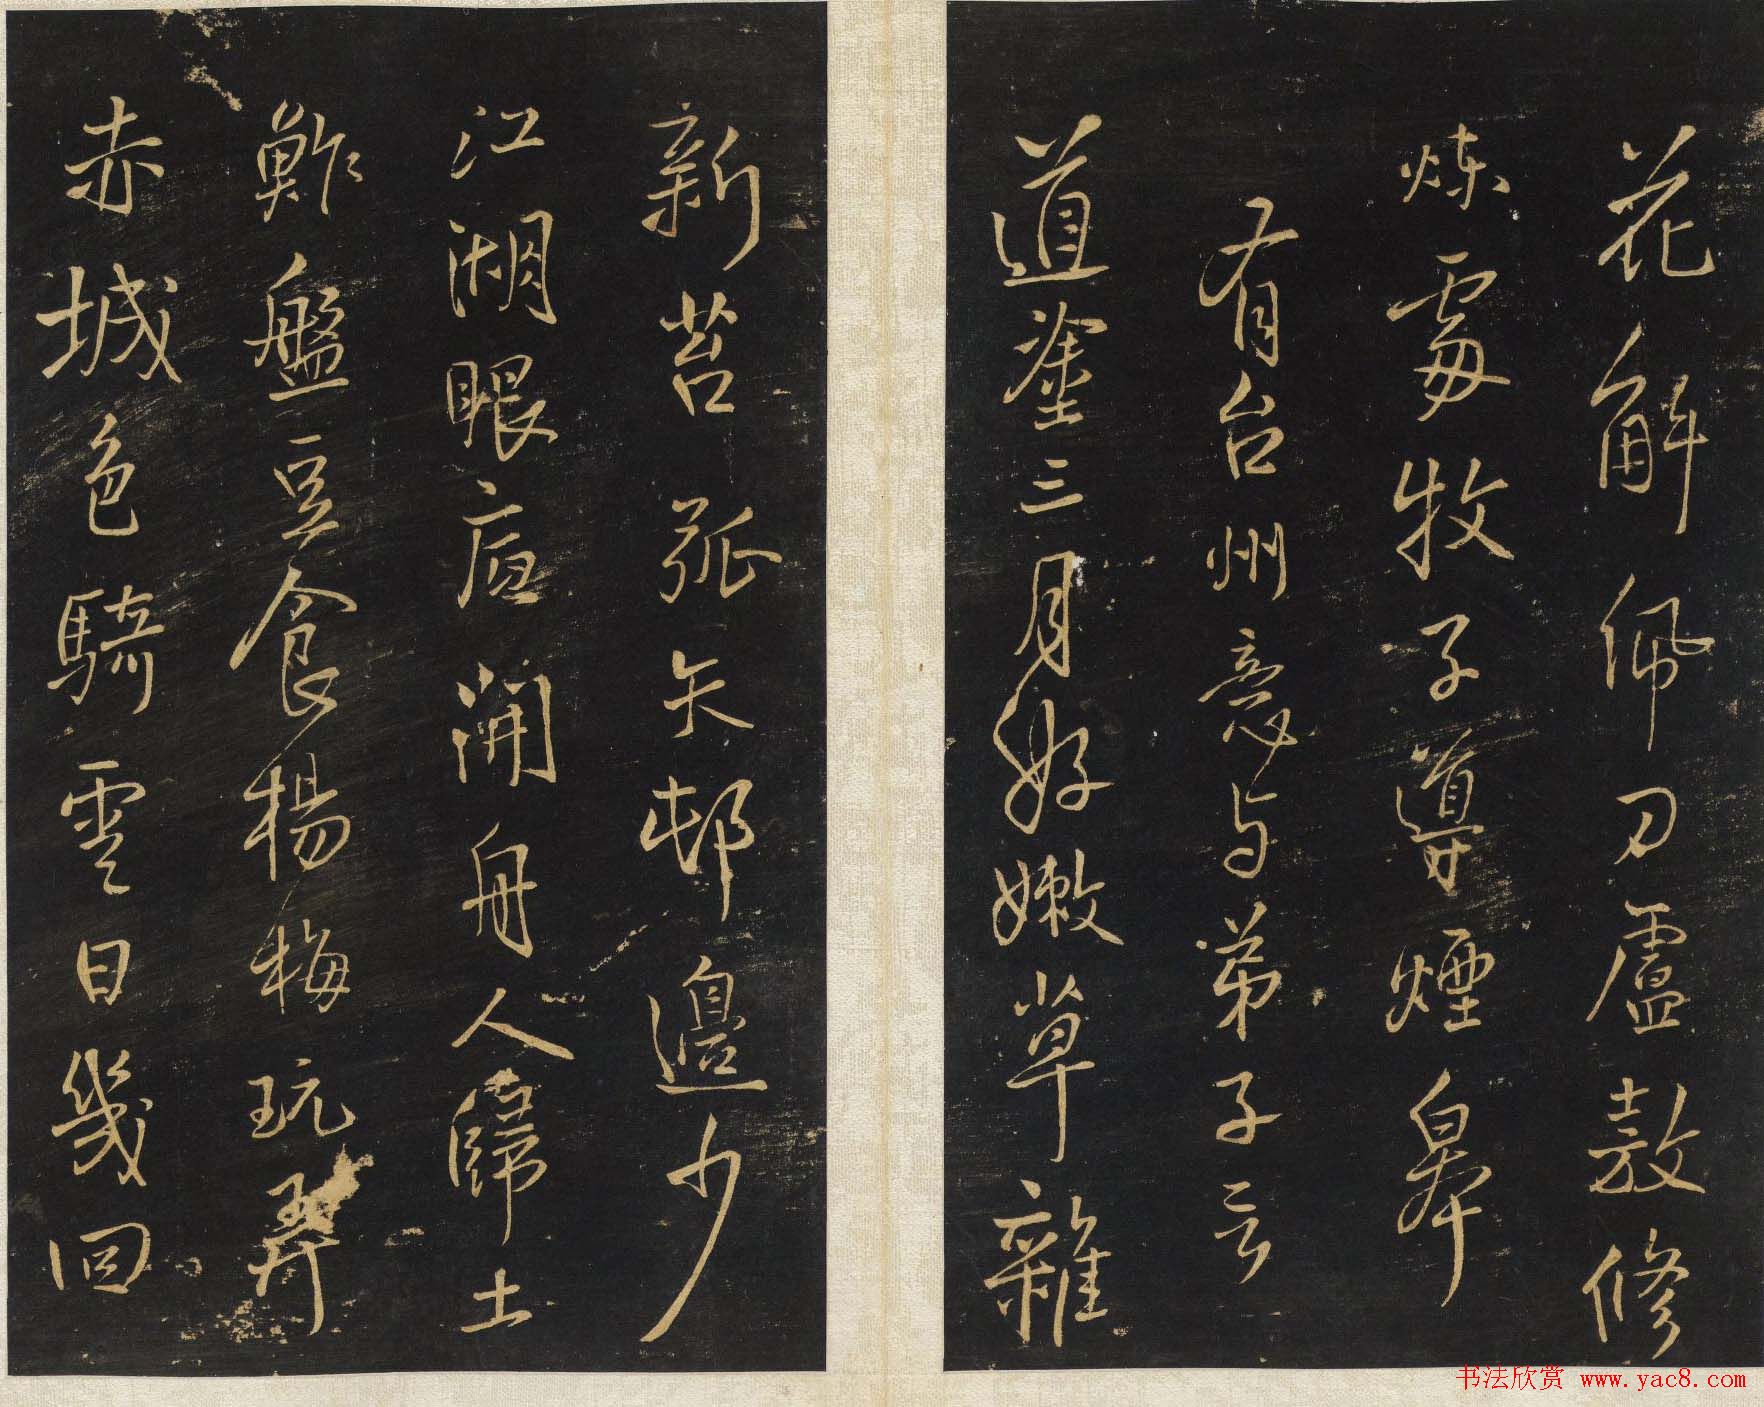 花解佩刀盧敖修
煉處牧子導煙皋
有台州意與弟子言
道塗三月好嫩草雜
新苔孤矢邨邊少
江湖眼底開舟人歸土
鮓盤豆食楊梅玩弄
赤城色騎雲日幾回
书法欣赏 www.yac8.com